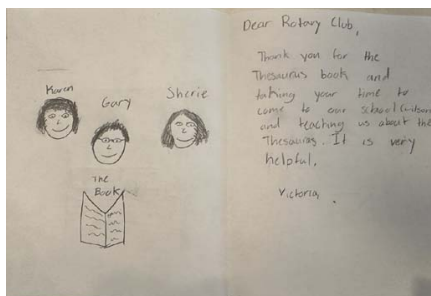 Karen
Gary
Sherie
The
Book
Dear Rotary Club,
Thank you for the
Thesaurus book and
taking your time to
come to our school
and teaching us about the
Thesaurus. It is very
helpful.
Victoria